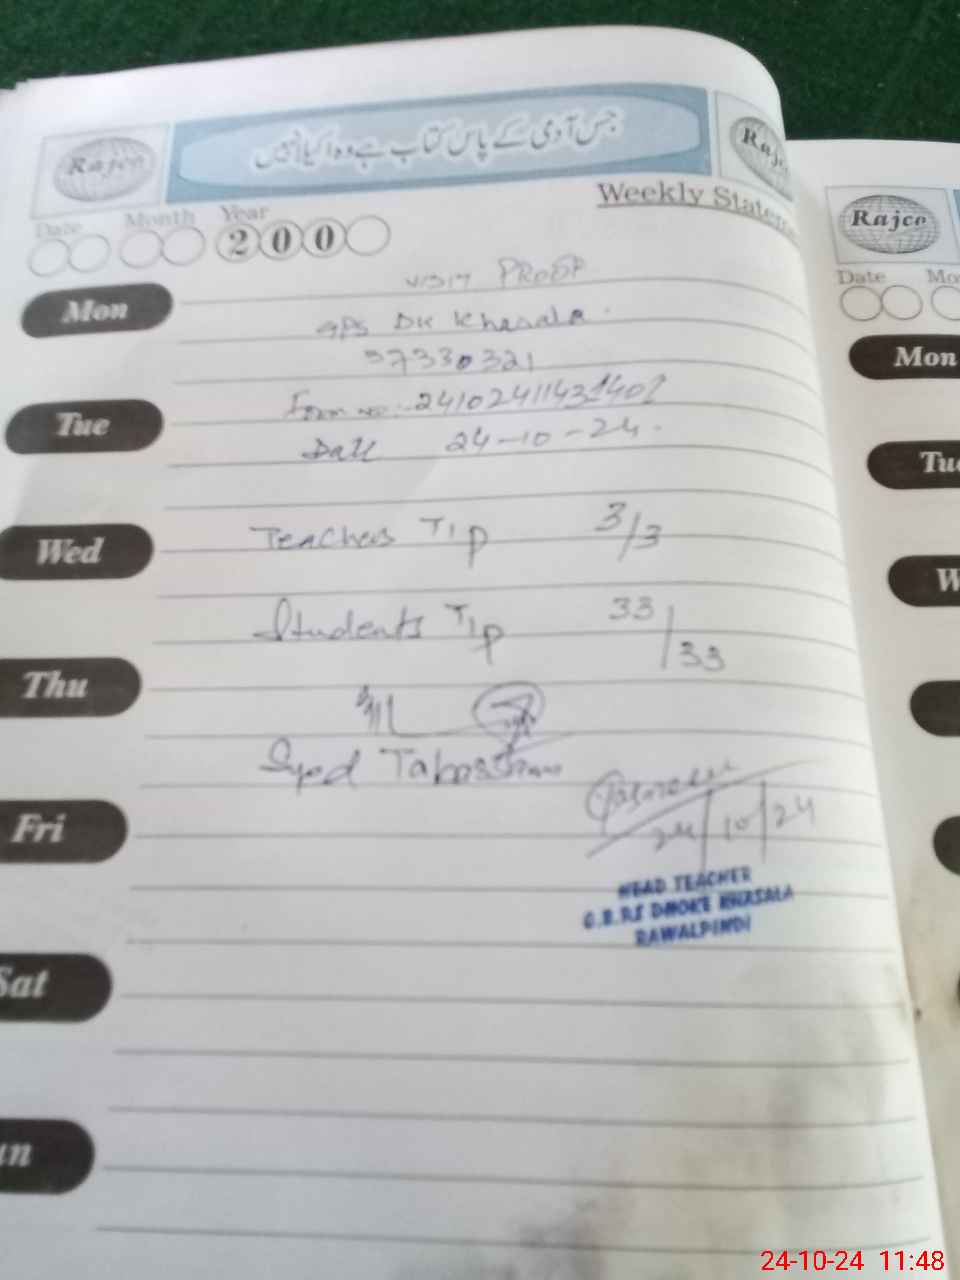 Rajco
جس آدمی کے پاس کتاب ہے وہ اکیلا نہیں
Rajco
Date Month Year
200
Weekly Statem
VISIT PROOF
Mon
GPS DK Khasala
37330321
Form no:-
Tue
Date 24-10-24.
Wed
Teachers Tip 3/3
Students Tip 33/33
Thu
Syed
Fri
24/10/24
HEAD TEACHER
DHOKE KHASALA
RAWALPINDI
Sat
un
Rajco
Date Mo
Mon
Tue
W
24-10-24 11:48